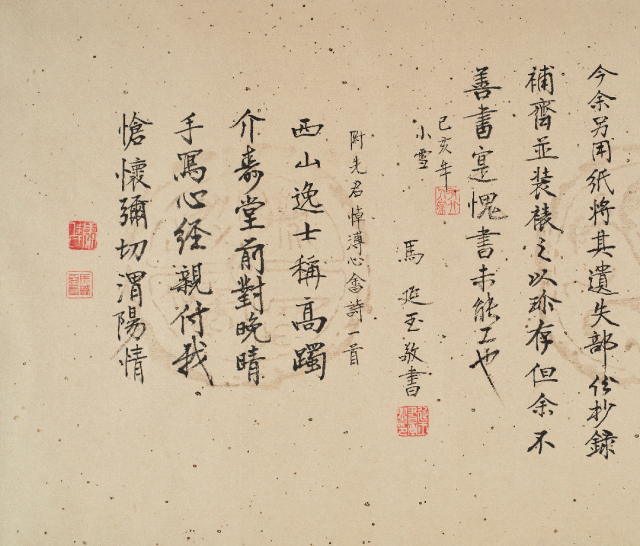 今余另用紙將其遺失部份抄錄
補齊並装裱之以珍存但余不
善書寔愧書未能工也
己亥年
小雪
馬延玉敬書
附先君悼溥心畬詩一首
西山逸士稱高躅
介壽堂前對晚晴
手寫心經親付我
愴懷彌切渭陽情